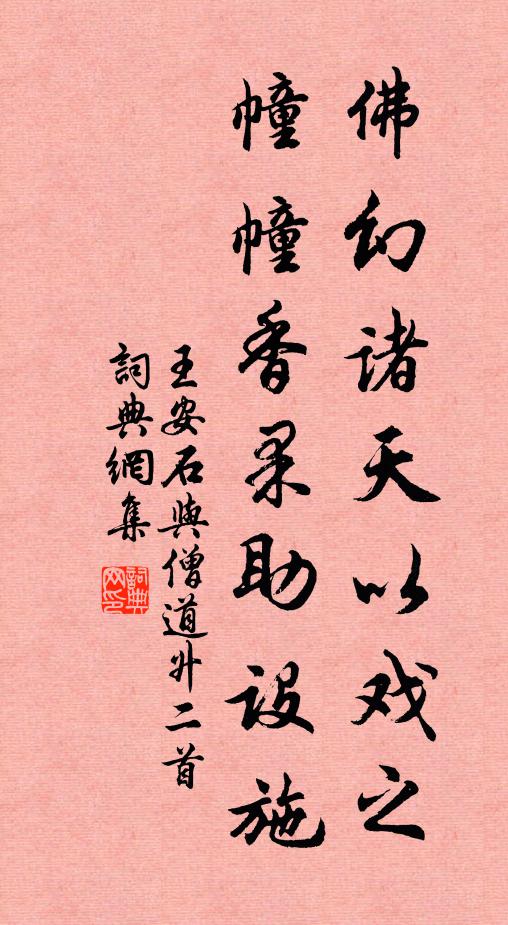 佛幻诸天以戏之
幢幢香果助設施
王安石與僧道升二首
詞典網集
詞典
网印